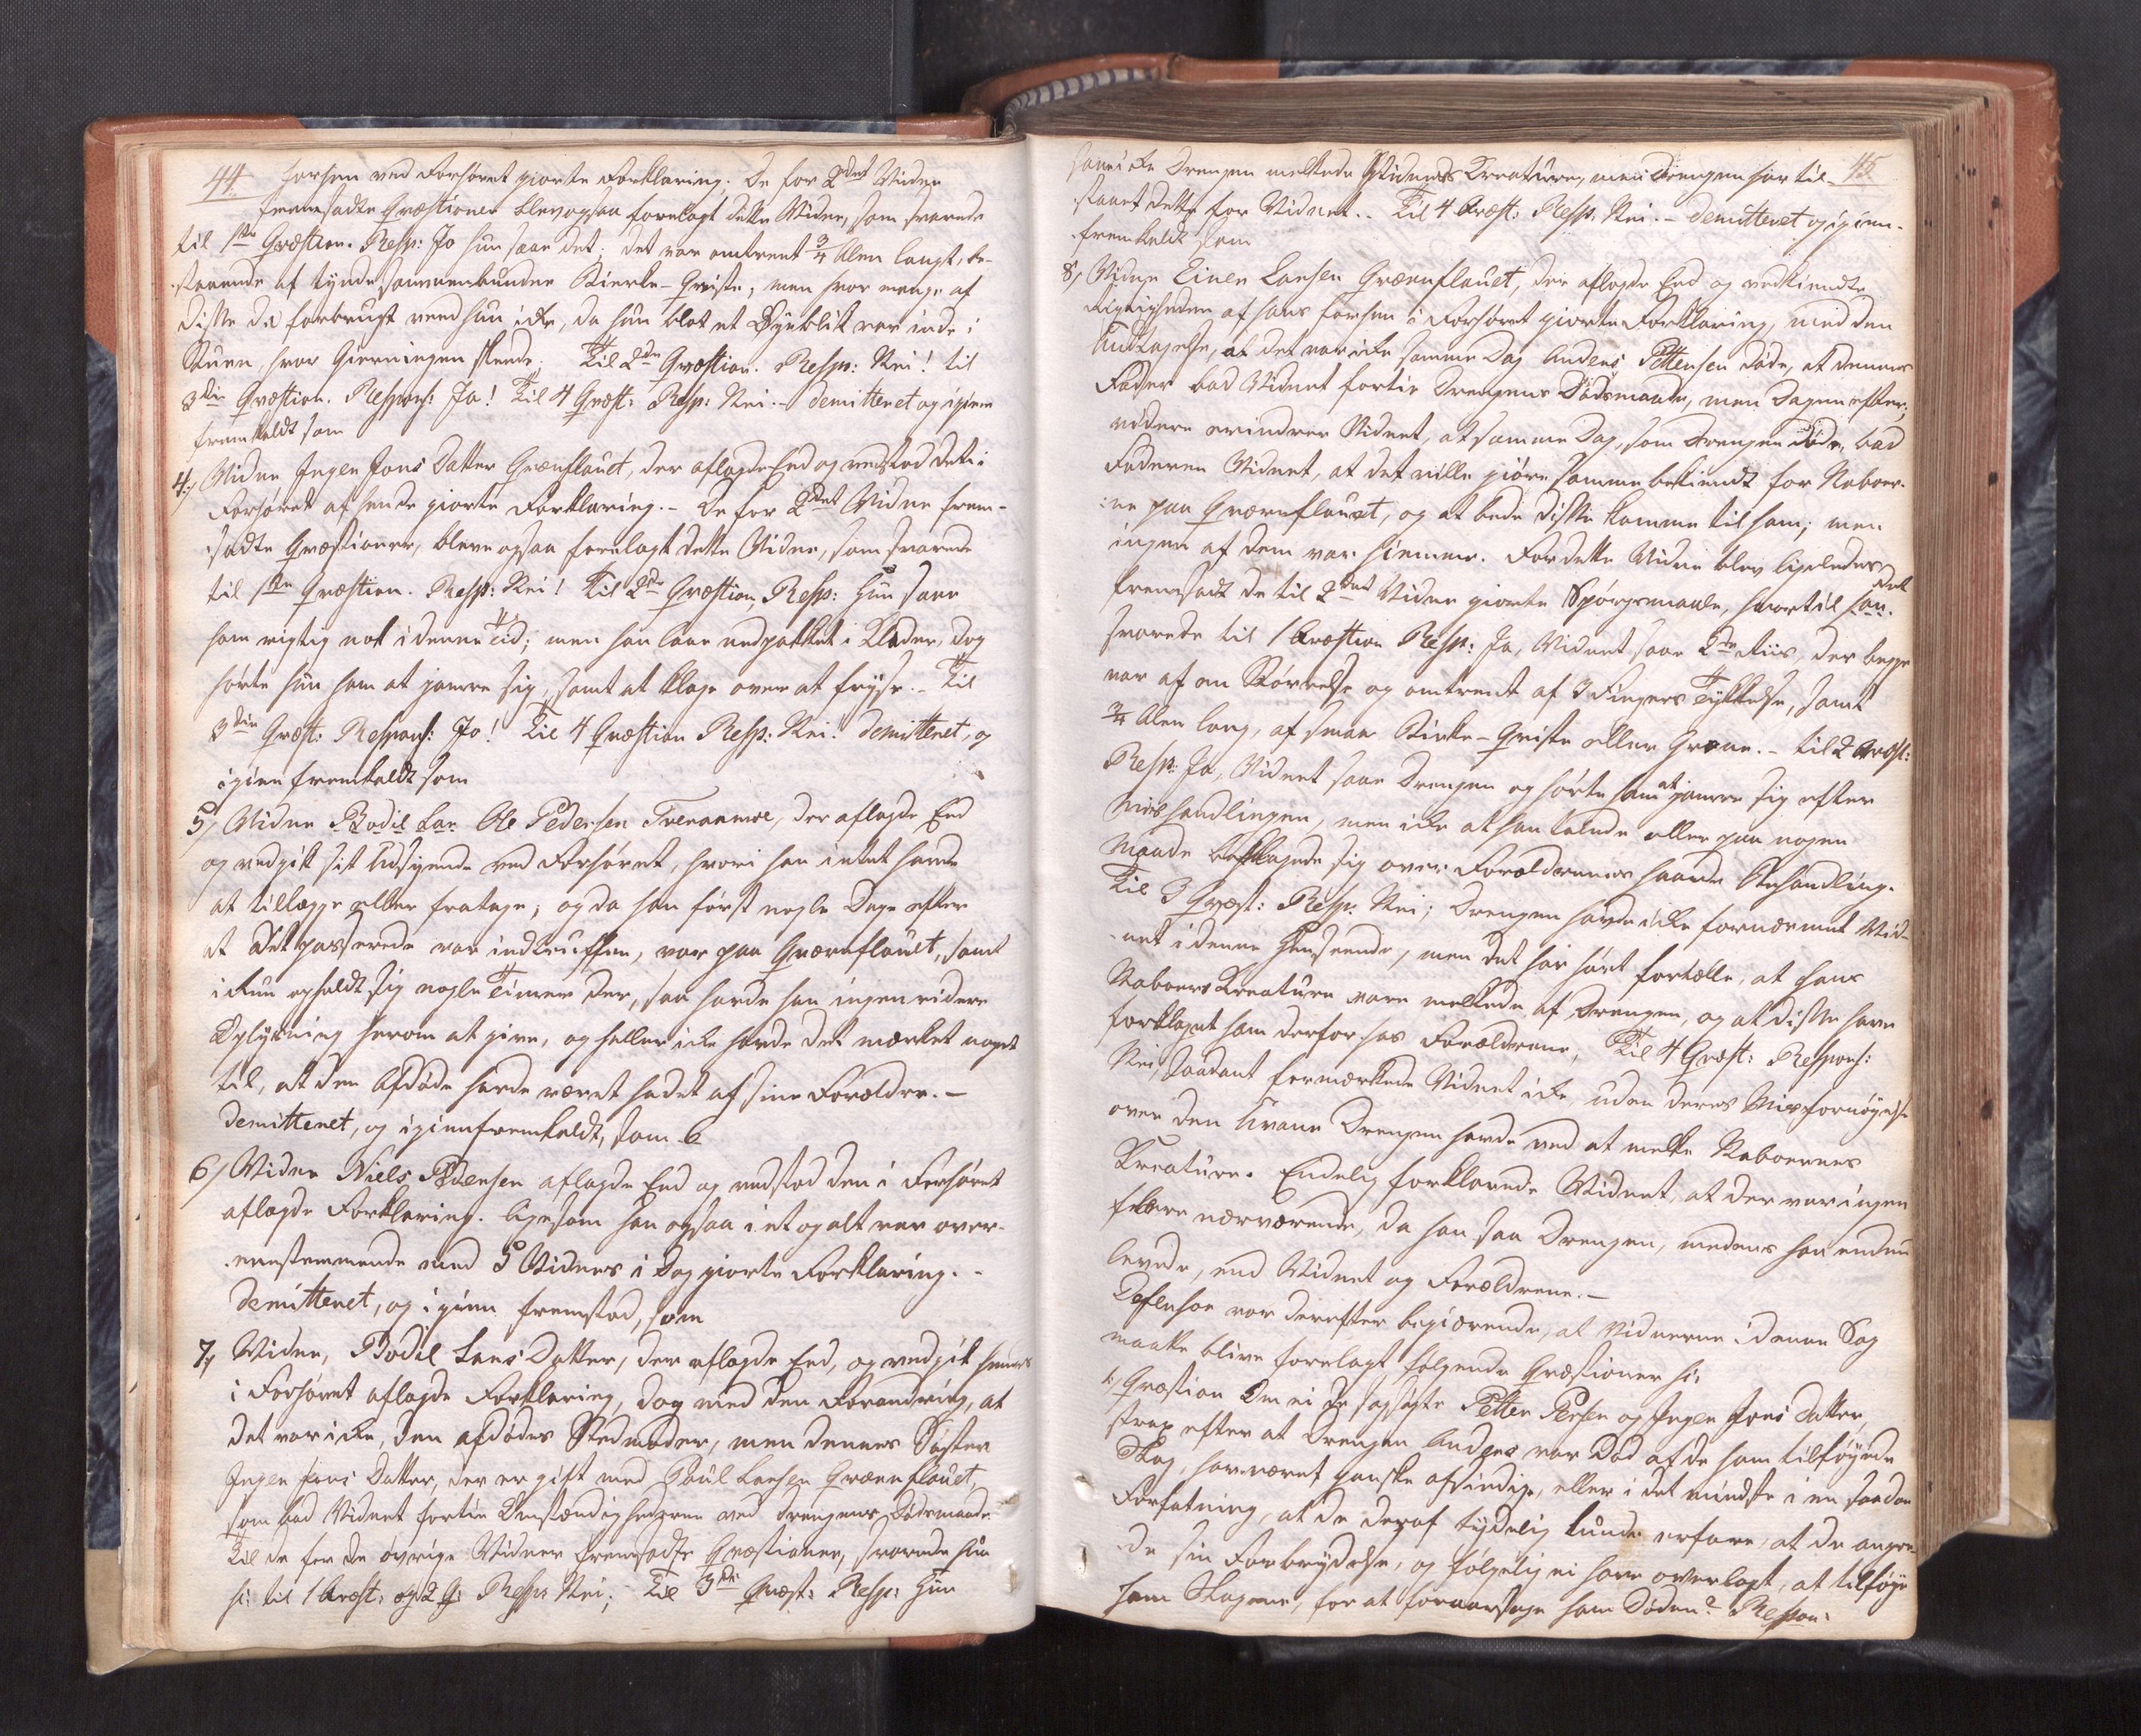 44.
forhen ved Forhøret giorte Forklaring. De for 2det Vidne
fremsadte Qvæstioner blev ogsaa forelagt dette Vidne, som svarede
til 1ste Qvæstion. Resp: Jo hun saae det; det var omtrent 3/4 Alen langt, be-
staaende af tynde sammenbundne Birke-Qviste, men hvor mange af
disse da forbrugt veed hun ikke, da hun blot et Øyeblik var inde i
Stuen, hvor Gierningen skeede. Til 2den Qvæstion. Resp: Nei! til
3die Qvæstion. Respons: Ja! Til 4 Qvæst: Resp: Nei. - Demitteret og igien
fremkaldt som
4) Vidne Inger Jons Datter Qvænflauet, der aflagde Eed og vedstod det i
Forhøret af hende giorte Forklaring. - De for 2det Vidne frem-
sadte Qvæstioner, bleve ogsaa forelagt dette Vidne, som svarede
til 1ste Qvæstion. Resp: Nei! Til 2de Qvæstion, Resp: Hun saae
ham rigtig nok i denne Tid; men han laae nedpakket i Klæder, dog
hørte hun ham at jamre sig, samt at klage over at fryse. - Til
3die Qvæst: Respons: Jo! Til 4 Qvæstion Resp: Nei. Demitteret, og
igien fremkaldt som
5) Vidne Bodil Lar. Ole Pedersen Tveraamoe, der aflagde Eed
og vedgik sit Udsigende ved Forhøret, hvori han intet havde
at tillægge eller fratage; og da han først nogle Dage efter
at det passerede var indtruffen, var paa Qvænflauet, samt
ikkun opholdt sig nogle Timer der, saa havde han ingen videre
Oplysning herom at give, og heller ikke havde det mærket noget
til, at den Afdøde havde været hadet af sine Forældre. -
Demitteret, og igien fremkaldt, som 6
6) Vidne Niels Pedersen aflagde Eed og vedstod den i Forhøret
aflagde Forklaring. Ligesom han ogsaa i et og alt var over-
eenstemmende med 5 Vidnes i Dag giorte Forklaring. -
Demitteret, og igien fremstod, som
7) Vidne, Bodil Lars Datter, der aflagde Eed, og vedgik hendes
i Forhøret aflagde Forklaring, dog med den Forandring, at
det var ikke, den afdødes Stedmoder, men dennes Søster
Inger Jons Datter, der er gift med Poul Larsen Qvænflauet,
som bad Vidnet fortie Omstændighederne ved Drengens Dødsmaade.
Til de for de øvrige Vidner fremsadte Qvæstioner, svarede hun
s: til 1 Qvæst: og 2 Q: Resp: Nei; Til 3die Qvæst: Resp: Hun
45.
saae ikke Drengen melkede Vidnets Creature, men Drengen har til-
staaet dette for Vidnet. - Til 4 Qvæst: Resp: Nei. - Demitteret og igien-
fremkaldt som
8) Vidne Einer Larsen Qvænflauet, der aflagde Eed og vedkiendte
Rigtigheden af hans forhen i Forhøret giorte Forklaring, med den
Undtagelse, at det var ikke samme Dag Anders Pettersen døde, at dennes
Fader bad Vidnet fortie Drengens Dødsmaade, men Dagen efter;
videre erindrer Vidnet, at samme Dag, som Drengen døde, bad
Faderen Vidnet, at det ville giøre samme bekiendt for Naboer-
ne paa Qværnflauet, og at bede disse komme til ham; men
ingen af dem var hiemme. For dette Vidne blev ligeledes
fremsadt de til 2det Vidne giorte Spørgsmaale, hvortil han det
svarede til 1 Qvæstion Resp: Ja, Vidnet saae 2de Riis, der begge
var af en Størrelse og omtrent af 3 Fingers Tykkelse, samt
3/4 Alen lang, af smaae Birke-Qviste eller Grene. - til 2 Qvæst:
Resp: Ja, Vidnet saae Drengen og hørte ham at jamre sig efter
Mishandlingen, men ikke at han talede eller paa nogen
Maade beklagede sig over Forældrenes haarde Behandling.
Til 3 Qvæst: Resp: Nei; Drengen havde ikke fornærmet Vid-
net i denne Henseende, men det har hørt fortælle, at hans
Naboers Kreature vare melkede af Drengen, og at disse have
forklaget ham derfor hos Forældrene, Til 4 Qvæst: Respons:
Nei, saadant formærkede Vidnet ikke, uden deres Misfornøyelse
over den Uvane Drengen havde ved at melke Naboernes
Kreature. Endelig forklarede Vidnet, at der var ingen
flere nærværende, da han saae Drengen, medens han endnu
levede, end Vidnet og Forældrene. -
Defensor var derefter begiærende, at Vidnerne i denne Sag
maatte blive forelagt følgende Qvæstioner s:
1) Qvæstion Om ei de sagsøgte Petter Persen og Inger Jons Datter,
strax efter at Drengen Anders var Død af de ham tilføyede
Slag, har været ganske afsindige, eller i det mindste i en saadan
Forfatning, at de deraf tydelig kunde erfare, at de angre-
de sin Forbrydelse, og følgelig ei have overlagt, at tilføye
ham Slagene, for at foraarsage ham Døden? Respon: